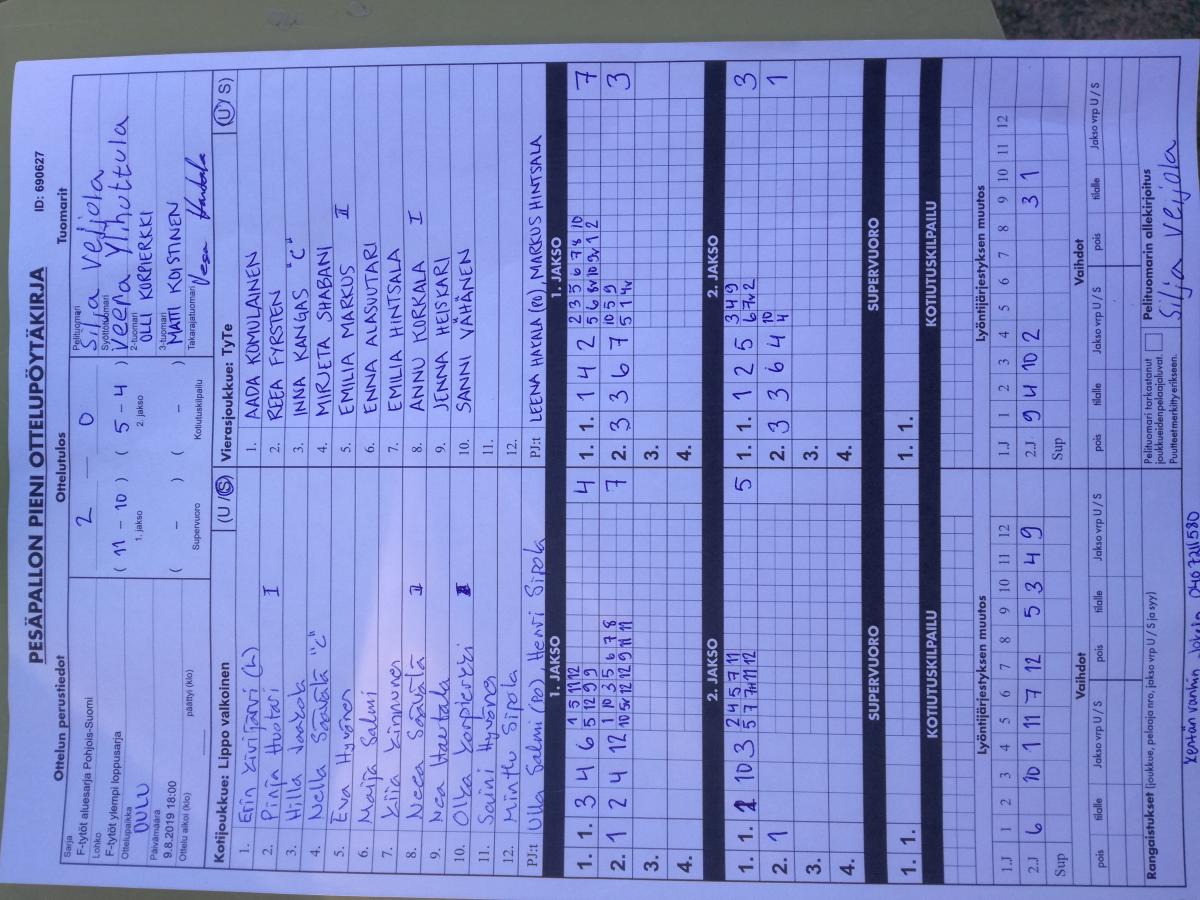 PESÄPALLON PIENI OTTELUPÖYTÄKIRJA ID: 690627
Ottelun perustiedot
Sarja
F-tytöt aluesarja Pohjois-Suomi
Lohko
F-tytöt ylempi loppusarja
Ottelupaikka
OULU
Päivämäärä
9.8.2019 18:00
Ottelu alkoi (klo) päättyi (klo)
Ottelutulos
2 – 0
( 11 – 10 ) ( 5 – 4 )
1. jakso 2. jakso
( – ) ( – )
Supervuoro Kotiutuskilpailu
Tuomarit
Pelituomari
Silja Veijola
Syöttötuomari
Veera Ylihuttula
2-tuomari
OLLI KORPIERKKI
3-tuomari
MATTI KOISTINEN
Takarajatuomari
Vesa
Kotijoukkue: Lippo valkoinen (U / S)
1. Erin Kivijärvi (L)
2. Pinja Huotari I
3. Hilla
4. Nella Säävälä "C"
5. Eva Hyvönen
6. Maija Salmi
7. Kiia Kinnunen
8. Neea Säävälä II
9. Nea Hautala
10. Olka Korpierkki
11. Saini Hyvönen
12. Minttu Sipola
PJ:t Ulla Salmi (PO) Henri Sipola
Vierasjoukkue: TyTe (U / S)
1. AADA KOMULAINEN
2. REEA FYRSTEN
3. INNA KANGAS "C"
4. MIRJETA SHABANI
5. EMILIA MARKUS II
6. ENNA ALASUUTARI
7. EMILIA HINTSALA
8. ANNU KORKALA I
9. JENNA HEISKARI
10. SANNI VÄHÄNEN
11.
12.
PJ:t LEENA HAKALA (PO), MARKUS HINTSALA
1. JAKSO
1. 1. 3 4 6 1 5 11 12 4
5 12 9 9
2. 1 2 4 12 1 10 3 5 6 7 8 7
10 5x 12 12 9 11 11
3.
4.
1. JAKSO
1. 1. 1 4 2 2 3 5 6 7 8 10 7
5 6 8v 10 9x 1 2
2. 3 3 6 7 10 5 9 3
5 1 4v
3.
4.
2. JAKSO
1. 1. 2 10 3 2 4 5 7 11 5
5 7 7 11 12
2. 1
3.
4.
2. JAKSO
1. 1. 1 2 5 3 4 9 3
6 7v 2
2. 3 3 6 4 10 1
4
3.
4.
SUPERVUORO
1. 1.
SUPERVUORO
1. 1.
KOTIUTUSKILPAILU
KOTIUTUSKILPAILU
Lyöntijärjestyksen muutos
1.J 1 2 3 4 5 6 7 8 9 10 11 12
2.J 6 10 1 11 7 12 5 3 4 9
Sup
Lyöntijärjestyksen muutos
1.J 1 2 3 4 5 6 7 8 9 10 11 12
2.J 9 4 10 2 3 1
Sup
Vaihdot
pois tilalle Jakso vrp U / S pois tilalle Jakso vrp U / S
Vaihdot
pois tilalle Jakso vrp U / S pois tilalle Jakso vrp U / S
Rangaistukset (joukkue, pelaaja nro, jakso vrp U / S ja syy)
Pelituomari tarkastanut
joukkueiden pelaajaluvat.
Puutteet merkitty erikseen.
Pelituomarin allekirjoitus
Silja Veijola
Kentän vanhin 0407211580